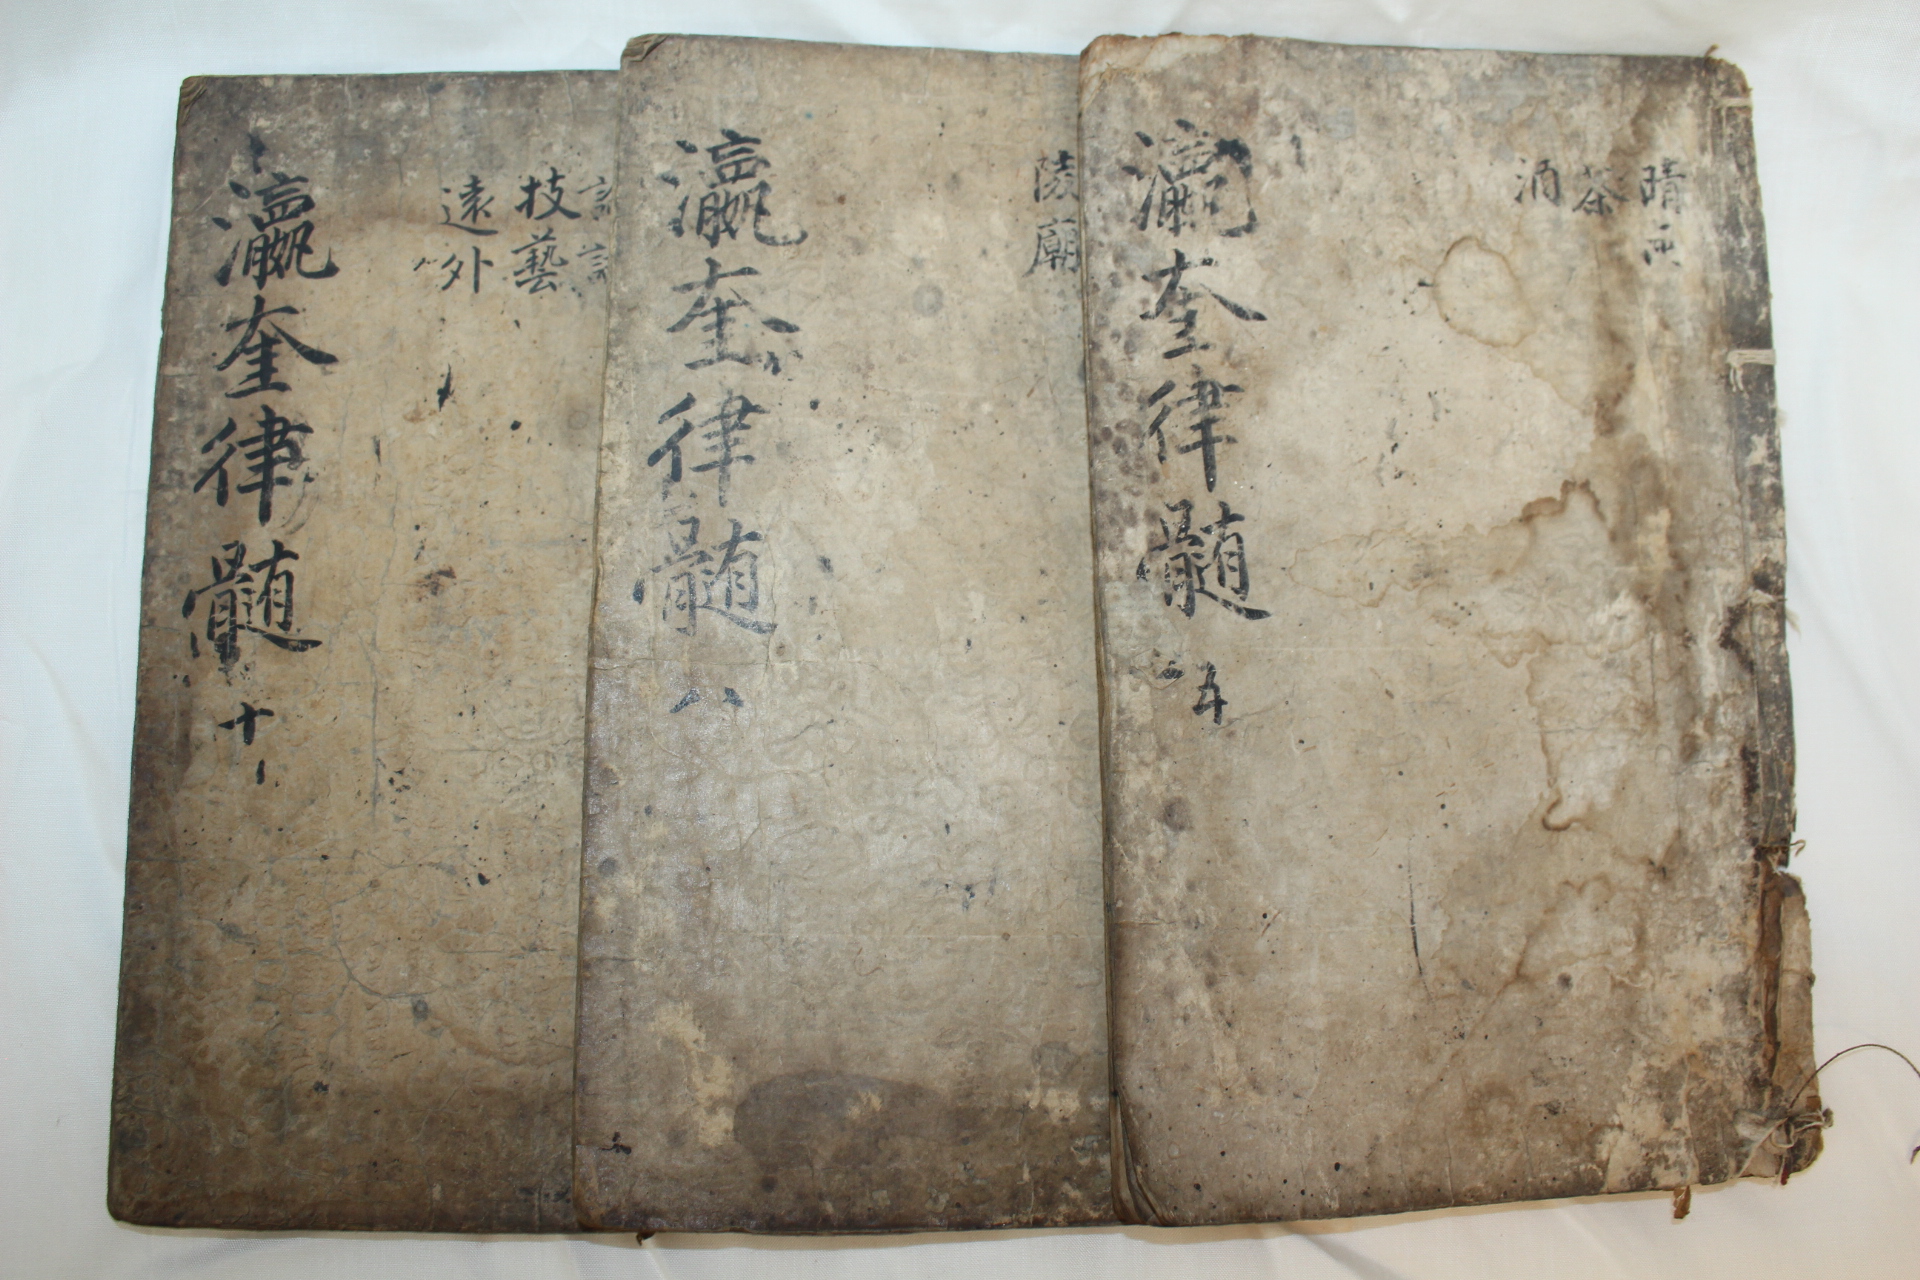 晴雨
茶
酒
瀛奎律髓
五
陵廟
瀛奎律髓
八
技藝
遠外
瀛奎律髓
十